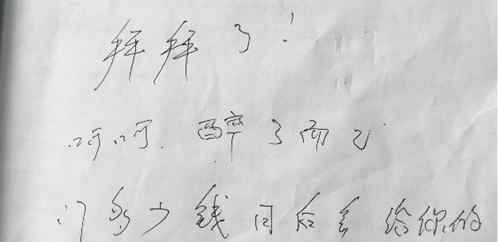 拜拜了！
呵呵.醉了而已
多少钱日后会给你的